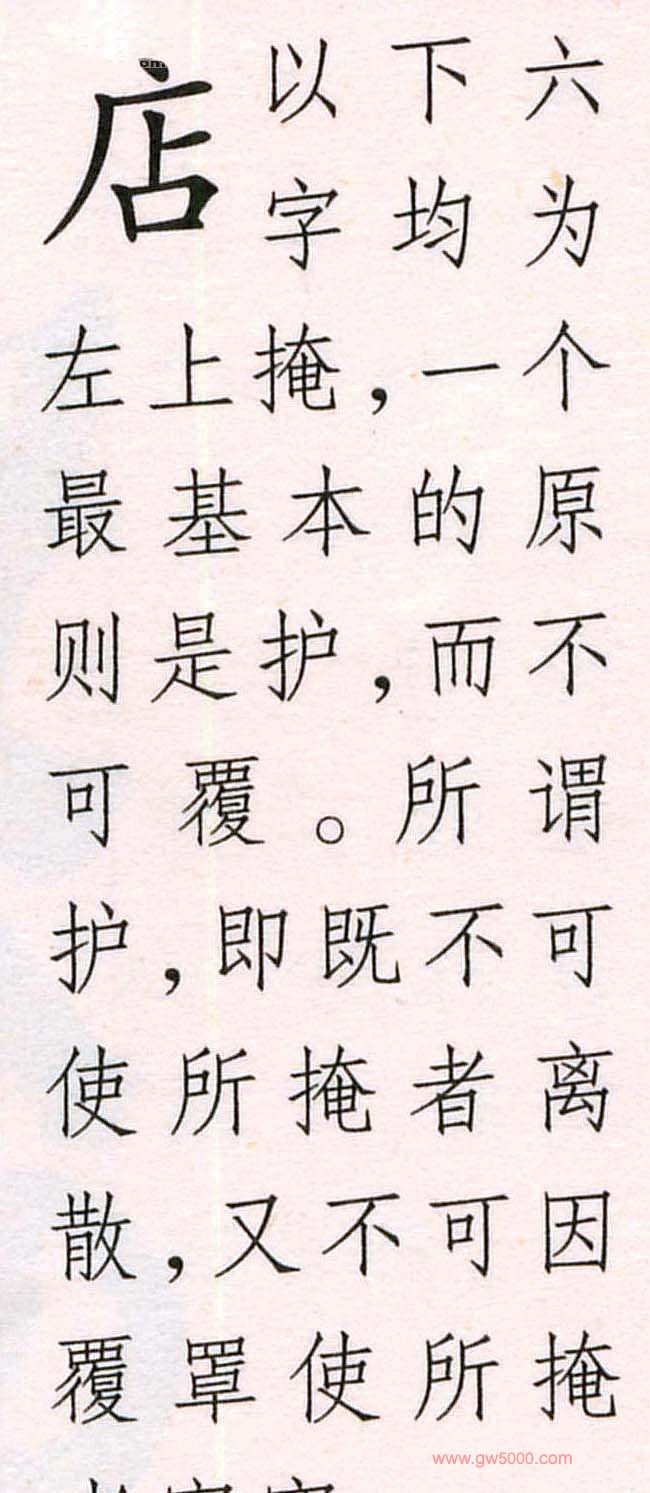 店
以下六
字均为
左上掩,一个
最基本的原
则是护,而不
可覆。所谓
护,即既不可
使所掩者离
散,又不可因
覆罩使所掩
www.gw5000.com